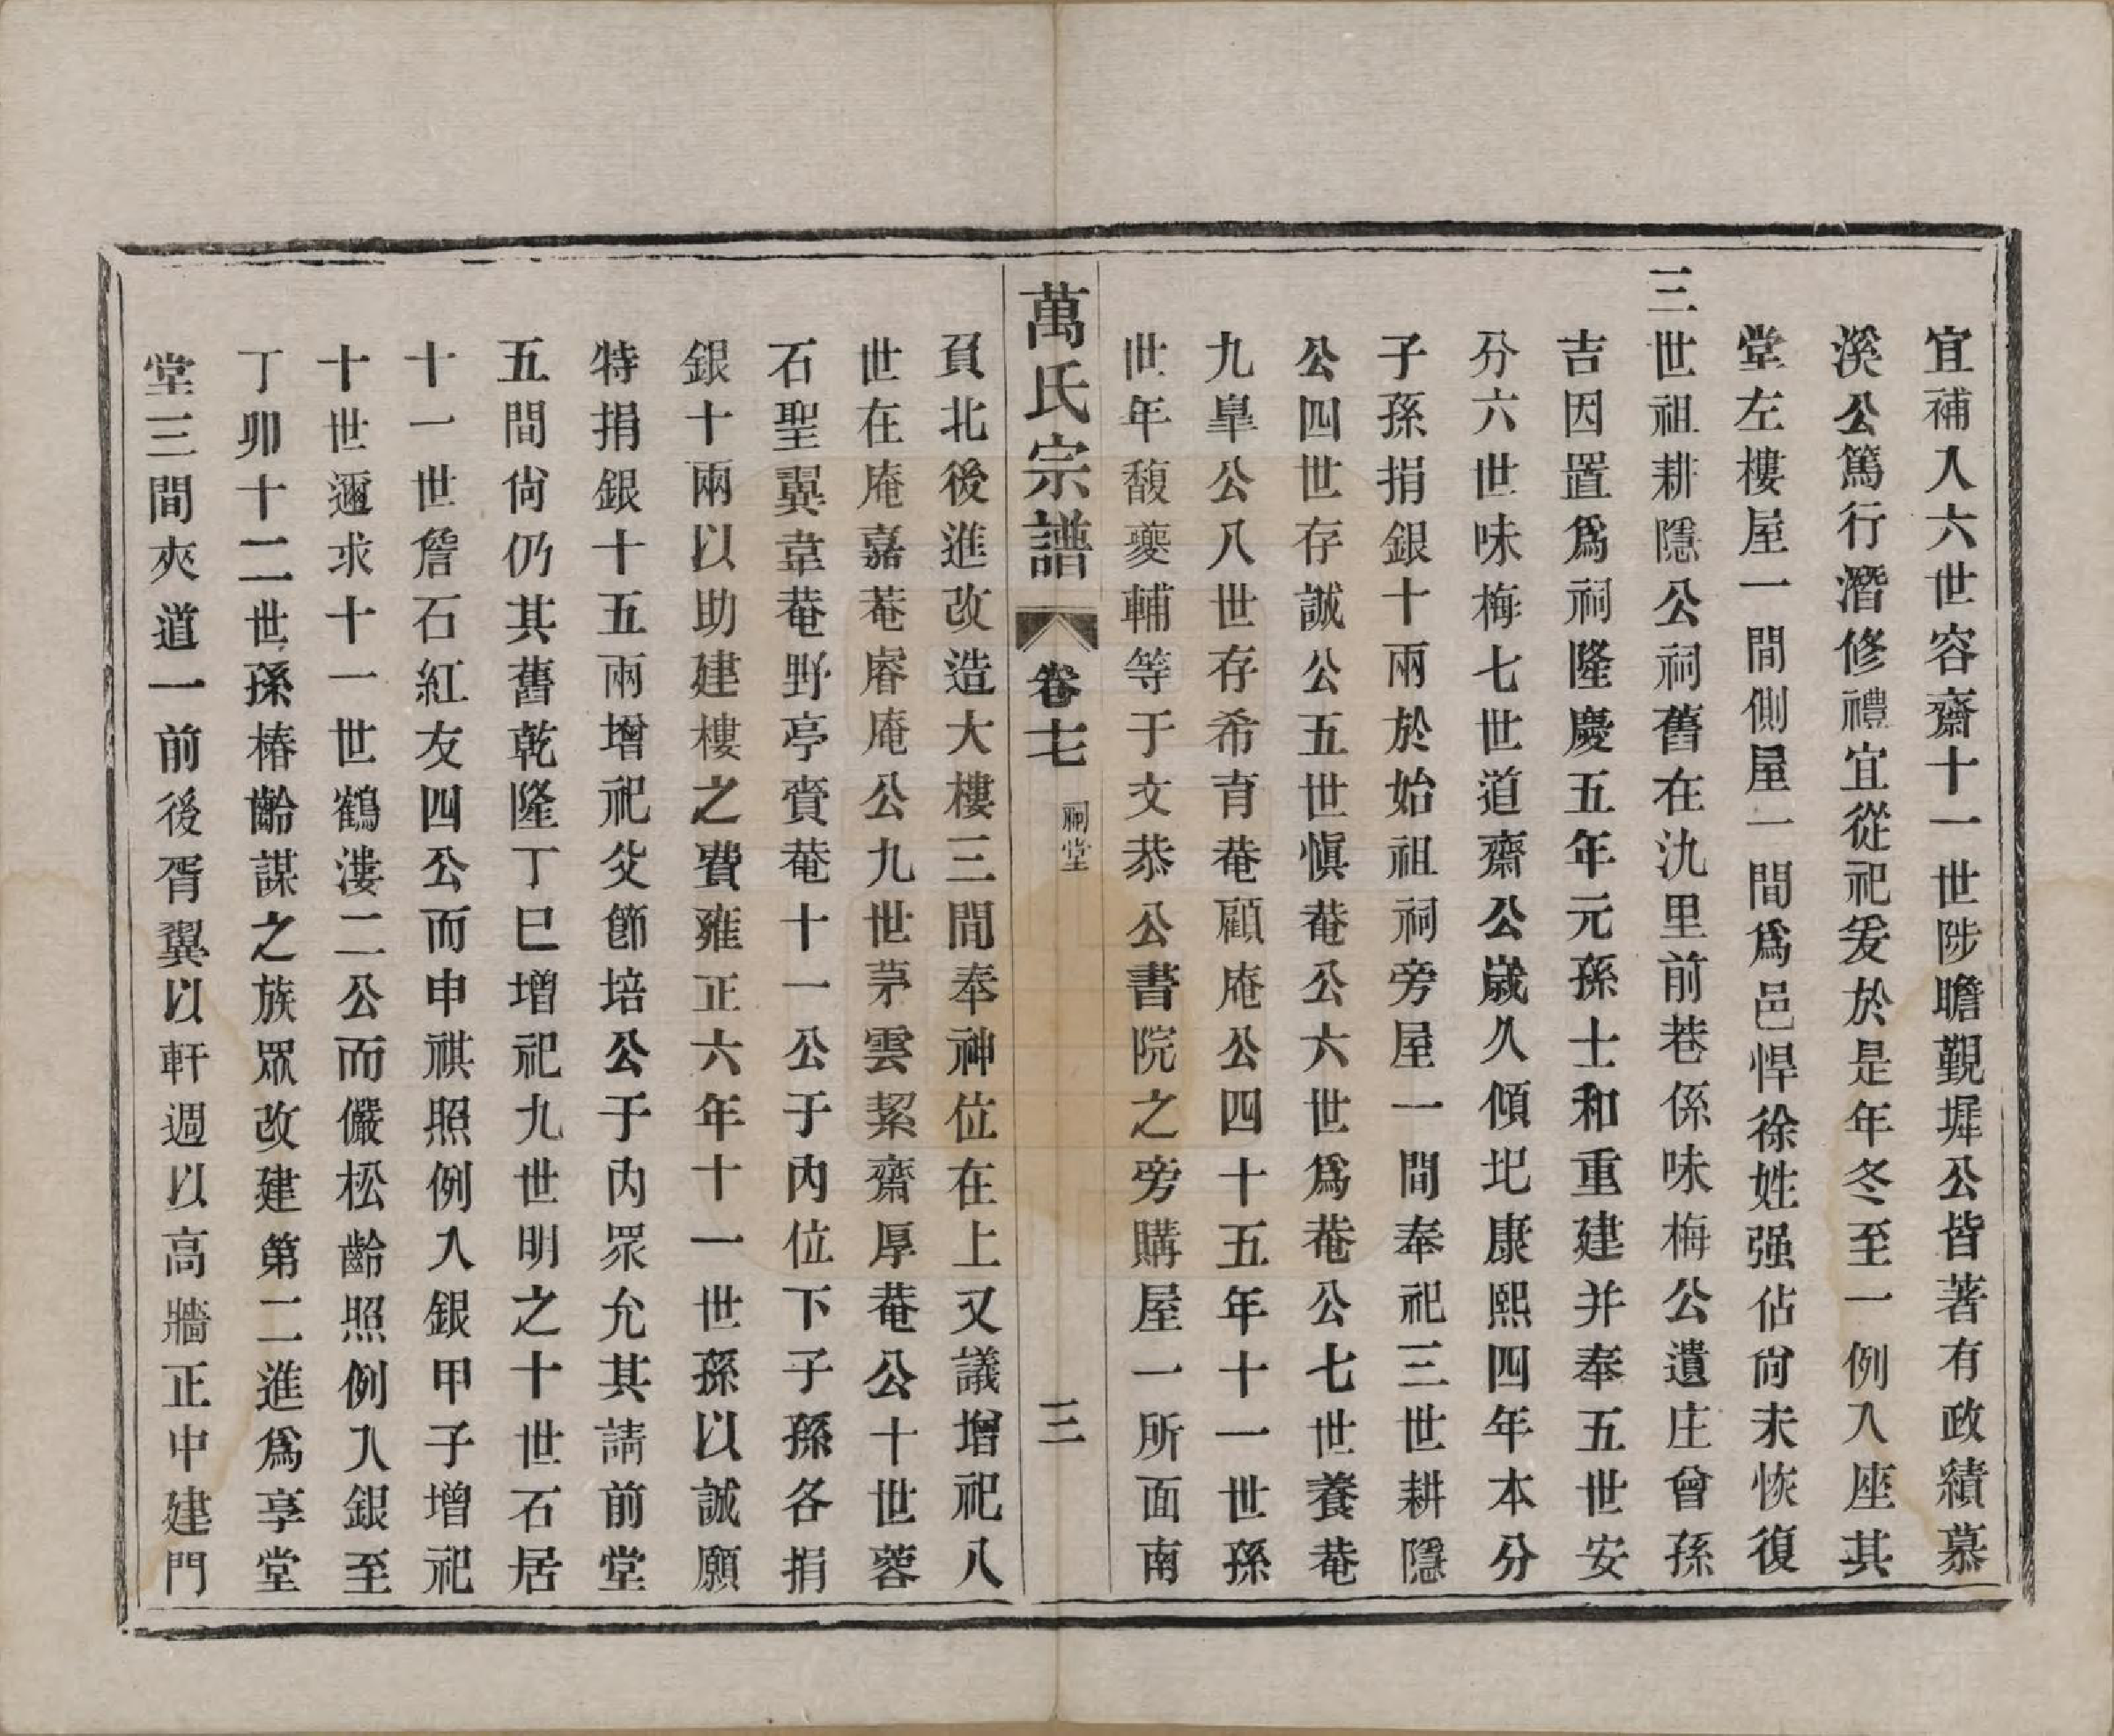 宜補入六世容齋十一世陟瞻覲墀公皆著有政績慕
溪公篤行潛修禮宜從祀爰於是年冬至一例入座其
堂左樓屋一間側屋一間爲邑悍徐姓强佔尙未恢復
三世祖耕隱公祠舊在氿里前巷係味梅公遺庄曾孫
吉因置爲祠隆慶五年元孫士和重建并奉五世安
分六世味梅七世道齋公歲久傾圯康熙四年本分
子孫捐銀十兩於始祖祠旁屋一間奉祀三世耕隱
公四世存誠公五世愼菴公六世爲菴公七世養菴
九臯公八世存希育菴顧庵公四十五年十一世孫
世年馥夔輔等于文恭公書院之旁購屋一所面南
負北後進改造大樓三間奉神位在上又議增祀八
世在庵嘉菴睿庵公九世茅雲絜齋厚菴公十世蓉
石聖翼韋菴野亭賚菴十一公于內位下子孫各捐
銀十兩以助建樓之費雍正六年十一世孫以誠願
特捐銀十五兩增祀父節培公于內眾允其請前堂
五間尙仍其舊乾隆丁巳增祀九世明之十世石居
十一世詹石紅友四公而申祺照例入銀甲子增祀
十世邇求十一世鶴淒二公而儼松齡照例入銀至
丁卯十二世孫椿齡謀之族眾改建第二進爲享堂
堂三間夾道一前後胥翼以軒週以高牆正中建門
萬氏宗譜
卷七
祠堂
三